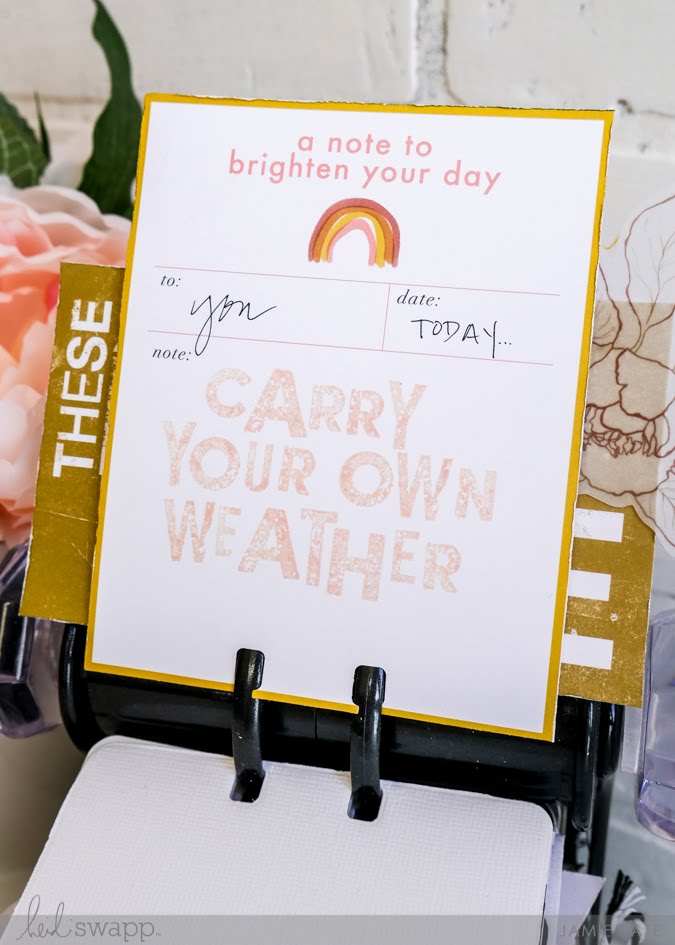 a note to
brighten your day
to: you
date: TODAY...
note:
CARRY
YOUR OWN
WEATHER
THESE
heidi swapp